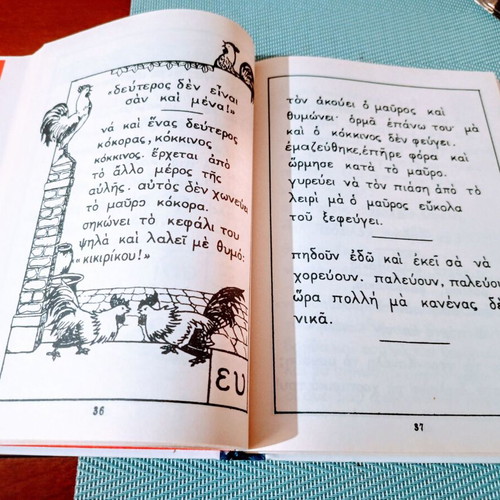 «δεύτερος δὲν εἶναι
σὰν καὶ μένα!»
νά καὶ ἕνας δεύτερος
κόκορας, κόκκινος
κόκκινος. ἔρχεται ἀπὸ
τὸ ἄλλο μέρος τῆς
αὐλῆς. αὐτὸς δὲν χωνεύει
τὸ μαῦρο κόκορα.
σηκώνει τὸ κεφάλι του
ψηλὰ καὶ λαλεῖ μὲ θυμό:
«κικιρίκου!»
ευ
36
τὸν ἀκούει ὁ μαῦρος καὶ
θυμώνει· ὁρμᾶ ἐπάνω του· μὰ
καὶ ὁ κόκκινος δὲν φεύγει.
ἐμαζεύθηκε, ἐπῆρε φόρα καὶ
ὥρμησε κατὰ τὸ μαῦρο.
γυρεύει νὰ τὸν πιάση ἀπὸ τὸ
λειρὶ μὰ ὁ μαῦρος εὔκολα
τοῦ ξεφεύγει.
πηδοῦν ἐδῶ καὶ ἐκεῖ σὰ νὰ
χορεύουν. παλεύουν, παλεύου
ὥρα πολλὴ μὰ κανένας δὲ
νικᾶ.
37